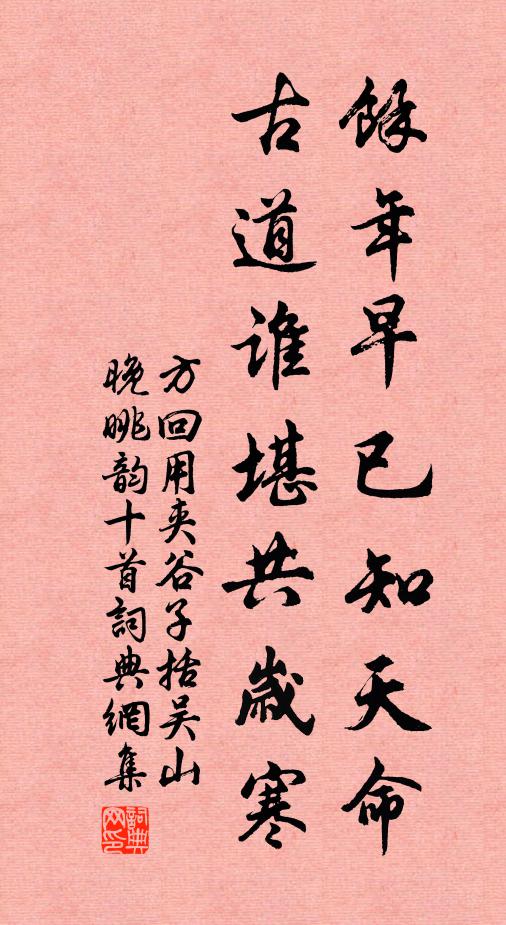 餘年早已知天命
古道誰堪共歲寒
方回用夾谷子括吴山
晚眺韵十首詞典網集
詞典网印